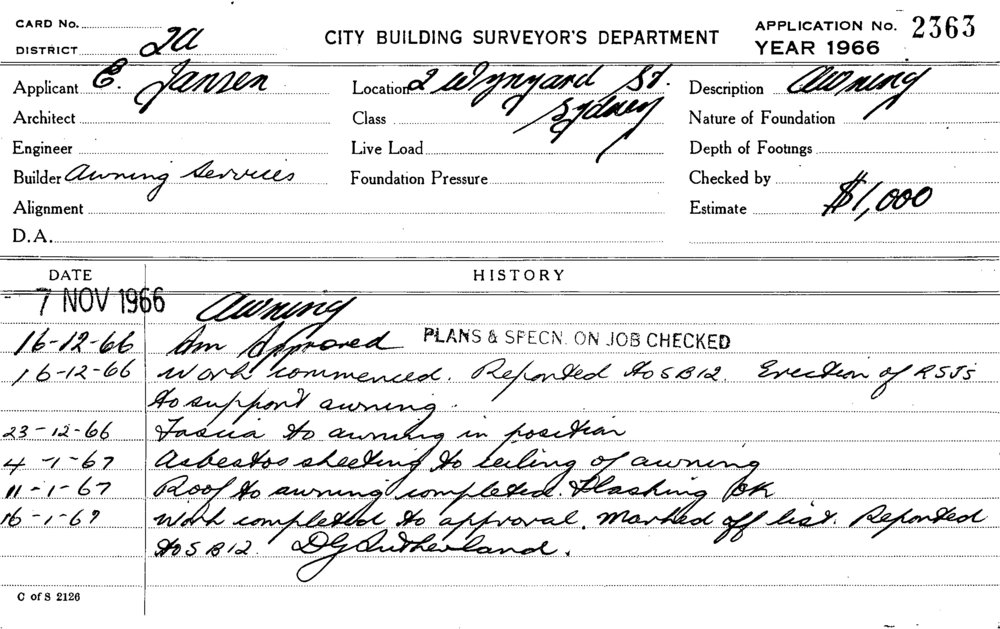 CARD No.
DISTRICT 2a
CITY BUILDING SURVEYOR'S DEPARTMENT
APPLICATION No. 2363
YEAR 1966
Applicant E. Jansen
Location 2 Wynyard St.
Sydney
Description Awning
Architect
Class
Nature of Foundation
Engineer
Live Load
Depth of Footings
Builder Awning Services
Foundation Pressure
Checked by
Alignment
Estimate $1,000
D.A.
DATE HISTORY
7 NOV 1966 Awning
16-12-66 Am Approved PLANS & SPECN. ON JOB CHECKED
16-12-66 Work commenced. Reported to SB12. Erection of RSJs
to support awning.
23-12-66 Fascia to awning in position
4-1-67 Asbestos sheeting to ceiling of awning
11-1-67 Roof to awning completed. Flashing OK
16-1-67 Work completed to approval. Marked off list. Reported
to SB12. DG Sutherland.
C of S 2126